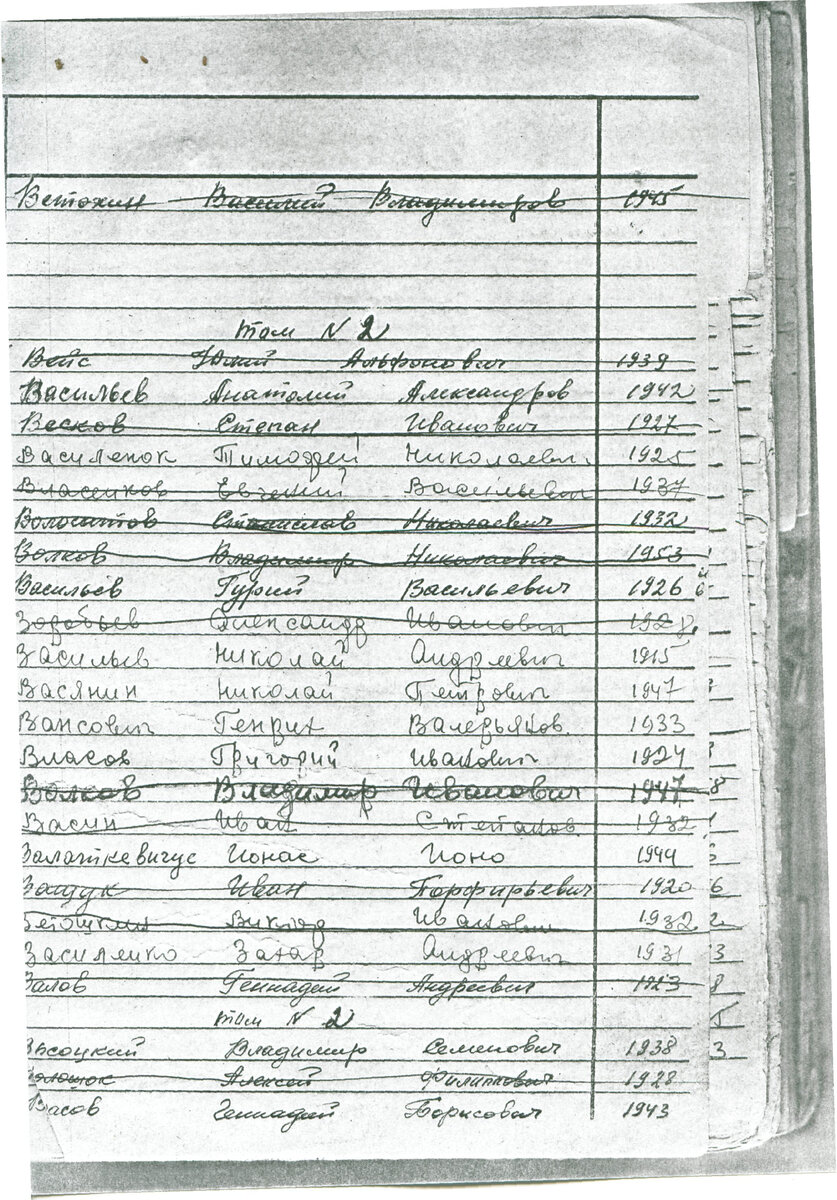 Ветохин Василий Владимиров 1945
том N 2
Вейс Юлий Альфонович 1939
Васильев Анатолий Александров 1942
Весков Степан Иванович 1927
Василенок Тимофей Николаевич 1925
Власенков Евгений Васильевич 1937
Станислав Николаевич 1932
Волков Владимир Николаевич 1953
Васильев Гурий Васильевич 1926
Воробьев Александр Иванович 1928
Васильев Николай Андреевич 1915
Васянин Николай Петрович 1947
Вансович Генрих Валерьянов. 1933
Власов Григорий Иванович 1924
Волков Владимир Иванович 1947
Васин Иван Степанов. 1932
Валаткевичус Ионас Ионо 1944
Ващук Иван Порфирьевич 1920
Ветошкин Виктор Иванович 1932
Василенко Захар Андреевич 1931
Валов Геннадий Андреевич 1923
том N 2
Высоцкий Владимир Семенович 1938
Алексей Филиппович 1928
Васов Геннадий Борисович 1943